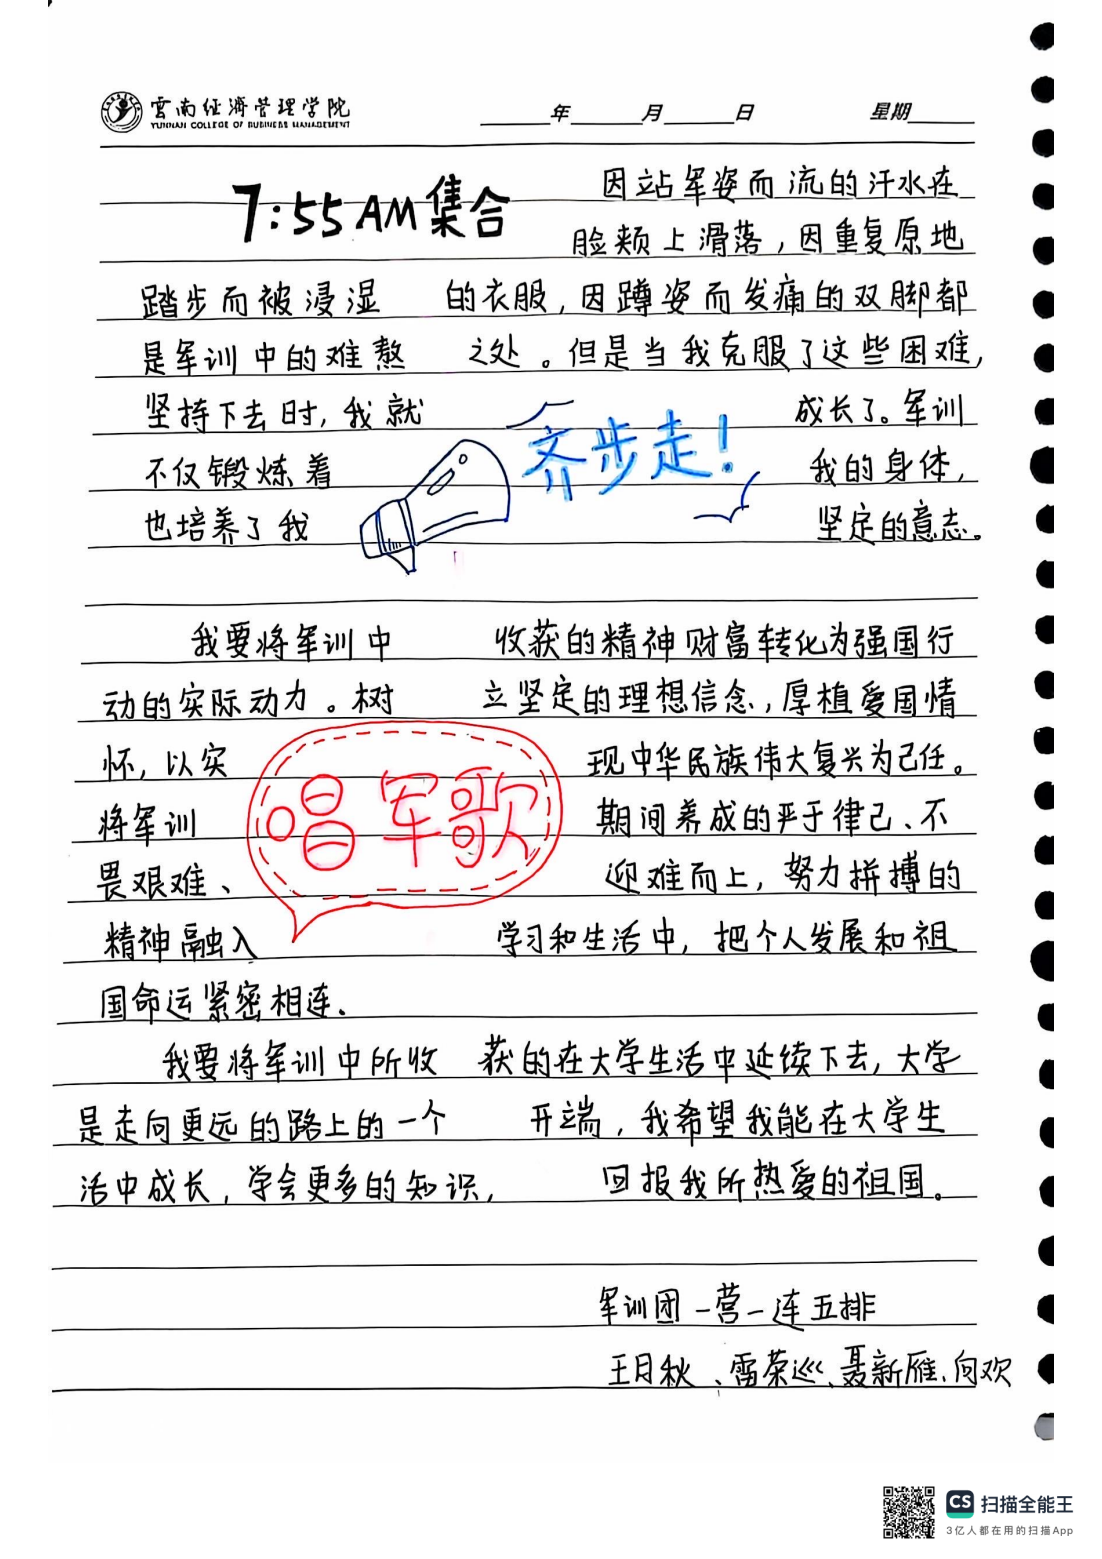 雲南经濟管理学院
YUNNAN COLLEGE OF BUSINESS MANAGEMENT
年 月 日 星期
7:55AM集合
因站军姿而流的汗水在
脸颊上滑落，因重复原地
踏步而被浸湿 的衣服，因蹲姿而发痛的双脚都
是军训中的难熬 之处。但是当我克服了这些困难，
坚持下去时，我就 成长了。军训
齐步走！
不仅锻炼着 我的身体，
也培养了我 坚定的意志。
我要将军训中 收获的精神财富转化为强国行
动的实际动力。树 立坚定的理想信念，厚植爱国情
怀，以实 现中华民族伟大复兴为己任。
唱军歌
将军训 期间养成的严于律己、不
畏艰难、 迎难而上，努力拼搏的
精神融入 学习和生活中，把个人发展和祖
国命运紧密相连.
我要将军训中所收 获的在大学生活中延续下去，大学
是走向更远的路上的一个 开端，我希望我能在大学生
活中成长，学会更多的知识， 回报我所热爱的祖国。
军训团一营一连五排
王月秋、雷荣巡、聂新雁、向欢
CS 扫描全能王
3亿人都在用的扫描App